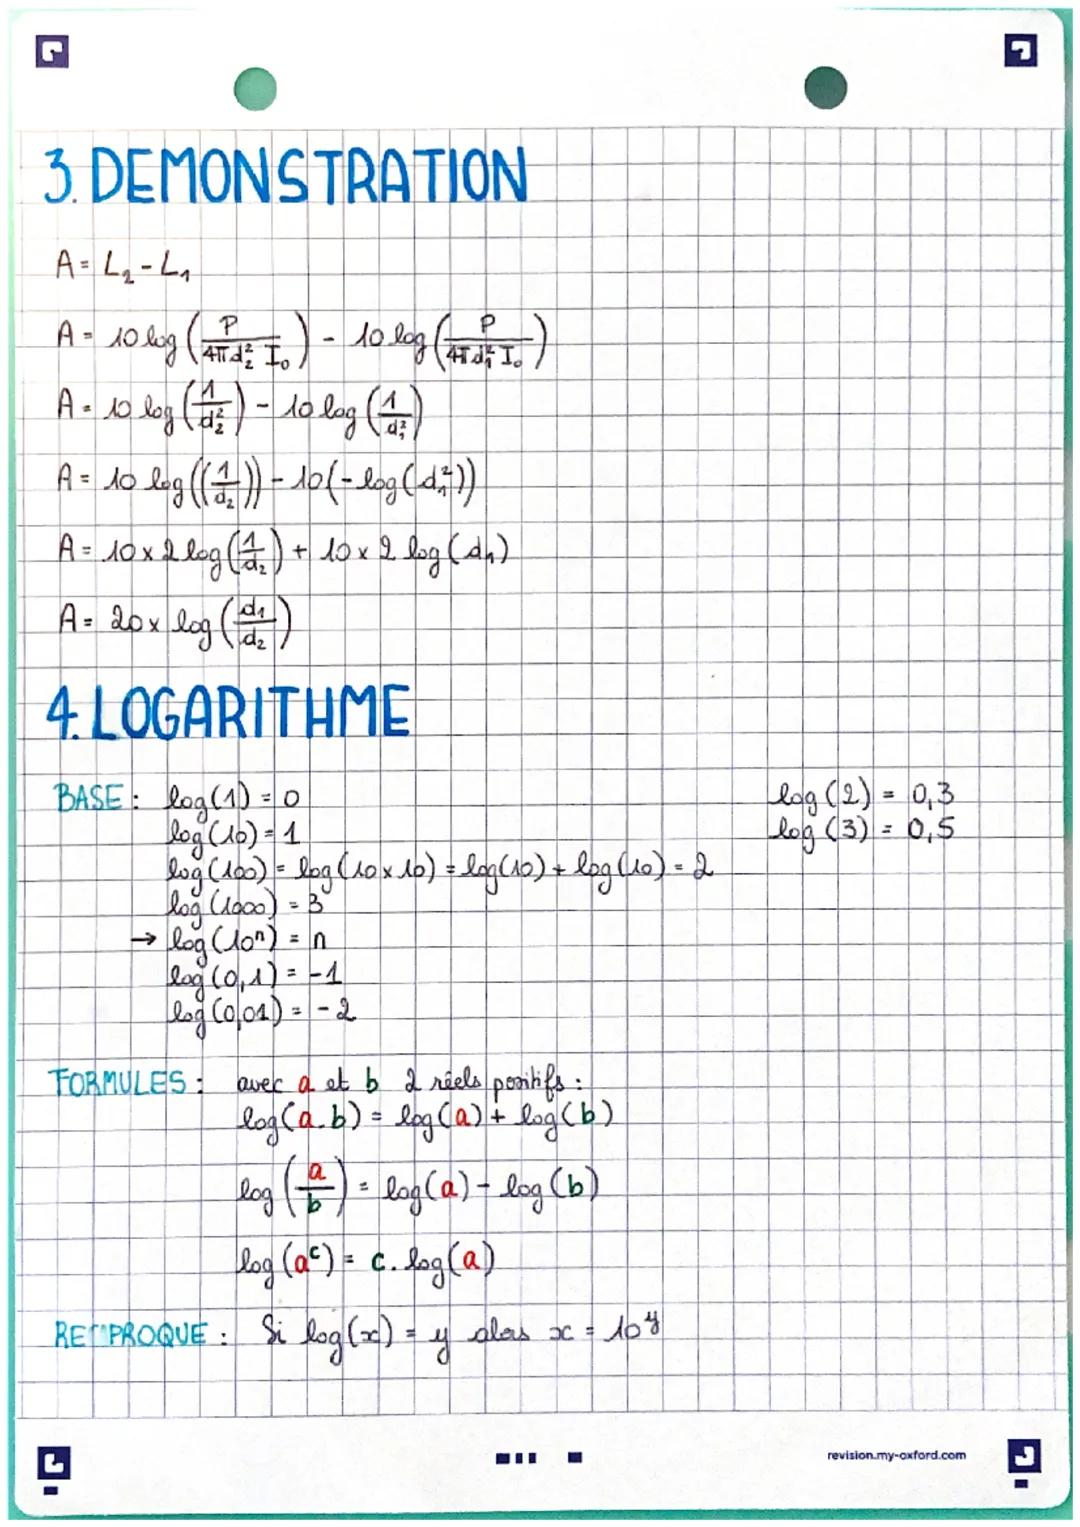 3. DEMONSTRATION
A = L₂ - L₁
A = 10 log (P / 4π d₂² I₀) - 10 log (P / 4π d₁² I₀)
A = 10 log (1 / d₂²) - 10 log (1 / d₁²)
A = 10 log ((1 / d₂)) - 10(-log(d₁²))
A = 10 x 2 log (1 / d₂) + 10 x 2 log (d₁)
A = 20 x log (d₁ / d₂)
4. LOGARITHME
BASE : log(1) = 0
log (2) = 0,3
log(10) = 1
log (3) = 0,5
log(100) = log(10 x 10) = log(10) + log(10) = 2
log (1000) = 3
→ log(10ⁿ) = n
log(0,1) = -1
log(0,01) = -2
FORMULES : avec a et b 2 réels positifs :
log(a.b) = log(a) + log(b)
log (a / b) = log(a) - log(b)
log (aᶜ) = c. log(a)
RECIPROQUE : Si log(x) = y alors x = 10ʸ
revision.my-oxford.com